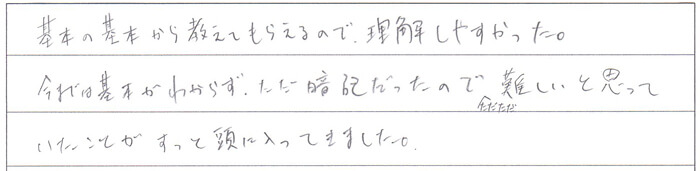 基本の基本から教えてもらえるので、理解しやすかった。
今までは基本がわからず、ただ暗記だったので難しいと思って
いたことがすっと頭に入ってきました。